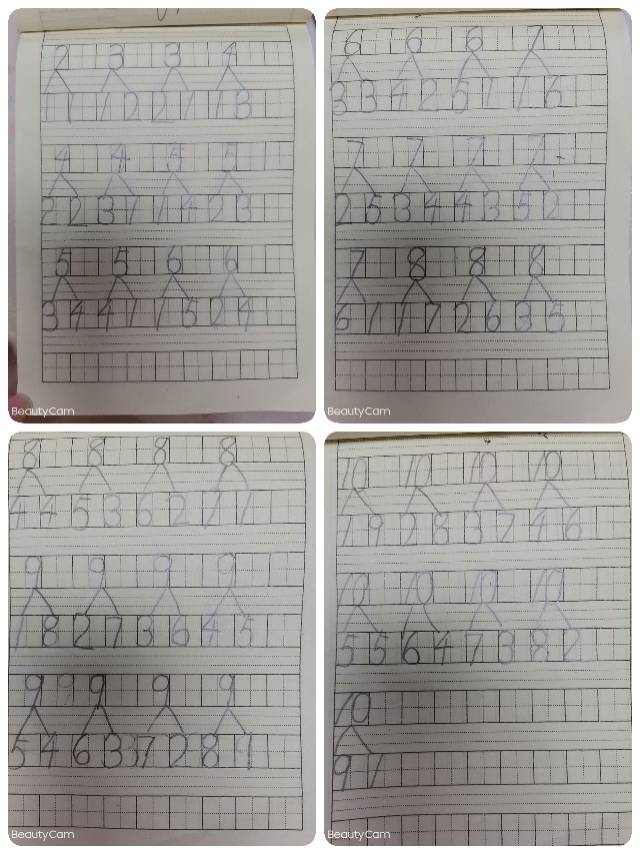 2 3 3 4
1 1 1 2 2 1 1 3
4 4 5 5
2 2 3 1 1 4 2 3
5 5 6 6
3 4 4 1 1 5 2 4
BeautyCam
6 6 6 7
3 3 4 2 5 1 1 6
7 7 7 7
2 5 3 4 4 3 5 2
7 8 8 8
6 1 1 7 2 6 3 5
BeautyCam
8 8 8 8
4 4 5 3 6 2 7 1
9 9 9 9
1 8 2 7 3 6 4 5
9 9 9 9 9
5 4 6 3 3 7 2 8 1
BeautyCam
10 10 10 10
1 9 2 8 3 7 4 6
10 10 10 10
5 5 6 4 7 3 8 2
10
9 1
BeautyCam